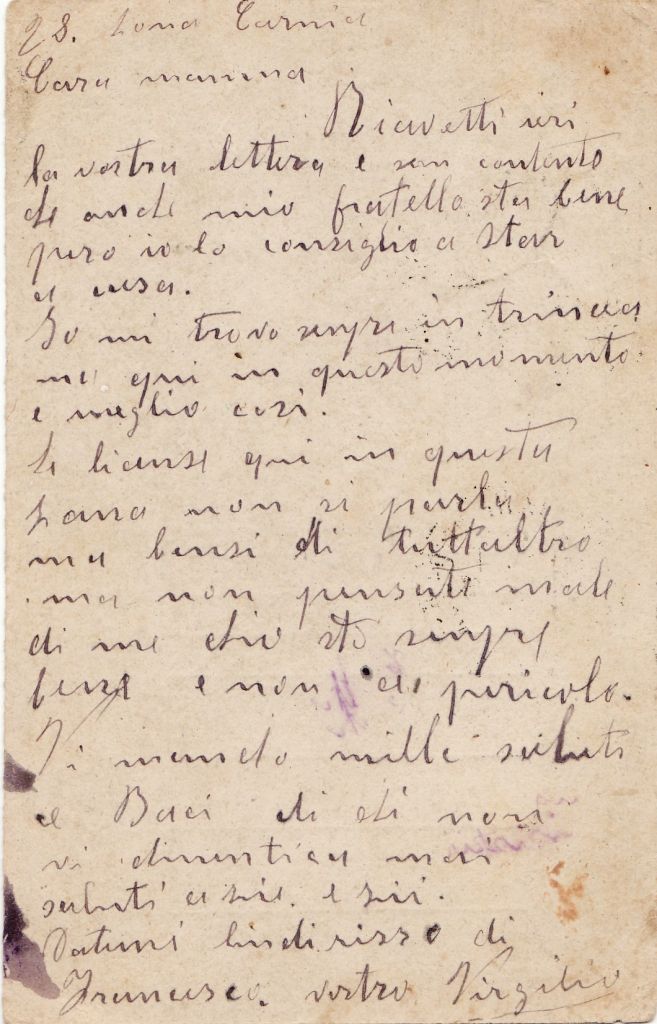 28. Zona Carnia
Cara mamma
Ricevetti ieri
la vostra lettera e son contento
che anche mio fratello sta bene
pero io lo consiglio a star
a casa.
Io mi trovo sempre in trincea
ma qui in questo momento
e meglio cosi.
Le license qui in questa
zona non si parla
ma bensi di tuttaltro
ma non pensate male
di me chio sto sempre
bene e non ce pericolo.
Vi mando mille saluti
e Baci di chi non
vi dimentica mai
saluti a zie. e zii.
Datemi lindirisso di
Francesco. vostro Virgilio